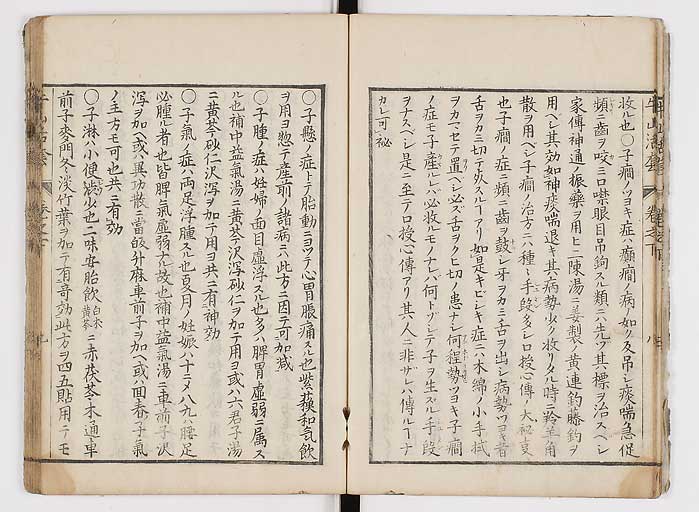 收ル也〇子癇ノツヨキ症ハ癲癇ノ病ノ如ク反吊シ痰喘急促
頻ニ齒ヲ咬ミ口噤眼目吊鉤スル類ニハ先ヅ其標ヲ治スベシ
家傳神通ノ振藥ヲ用ヒ二陳湯ニ姜製ノ黃連釣藤鈎ヲ
用ベシ其効如神痰喘退キ其病勢少ク收リタル時ニ羚羊角
散ヲ用ベシ子癇ノ治方ニハ種々手段多シ口授心傳ノ大秘事
也子癇ノ症ニ頻ニ齒ヲ鼓シ牙ヲカミ舌ヲ出シ病勢ツヨキ者
舌ヲカミ切テ死スルヿアリ如是キビシキ症ニハ木綿ノ小手拭
ヲカマセテ置ベシ必ズ舌ヲクヒ切ノ患ナシ何程勢ツヨキ子癇
ノ症モ子產ルレバ必收ルモノナレバ何トゾシテ子ヲ生ズル手段
ヲナスベシ是ニ至テ口授心傳アリ其人ニ非ザレバ傳ルヿナ
カレ可秘
〇子懸ノ症トテ胎動ニヨツテ心胃脹痛スル也紫蘓和氣飮
ヲ用ヨ惣テ產前ノ諸病ニハ此方ニ因テ可加減
〇子腫ノ症ハ姙婦ノ面目虛浮スル也多ハ脾胃虛弱ニ属ス
ル也補中益氣湯ニ黃芩沢瀉砂仁ヲ加テ用ヨ或ハ六君子湯
ニ黃芩砂仁沢瀉ヲ加テ用ヨ共ニ有神効
〇子氣ノ症ハ両足浮腫スル也夏月ノ姙娠ハ十ニメ八九ハ腰足
必腫ル者也皆脾氣虛弱ナル故也補中益氣湯ニ車前子沢
瀉ヲ加ベ或ハ異功散ニ當皈升麻車前子ヲ加ベ或ハ面春子氣
ノ主方モ可也共ニ有効
〇子淋ハ小便澁少也二味安胎飮白朮黃芩ニ赤茯苓木通車
前子麥門冬淡竹葉ヲ加テ有竒効此方ヲ四五貼用テモ